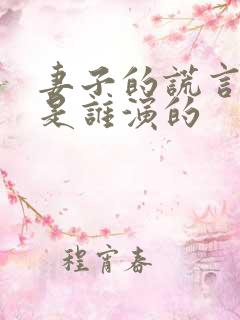 妻子的謊言
是誰演的
程宵春